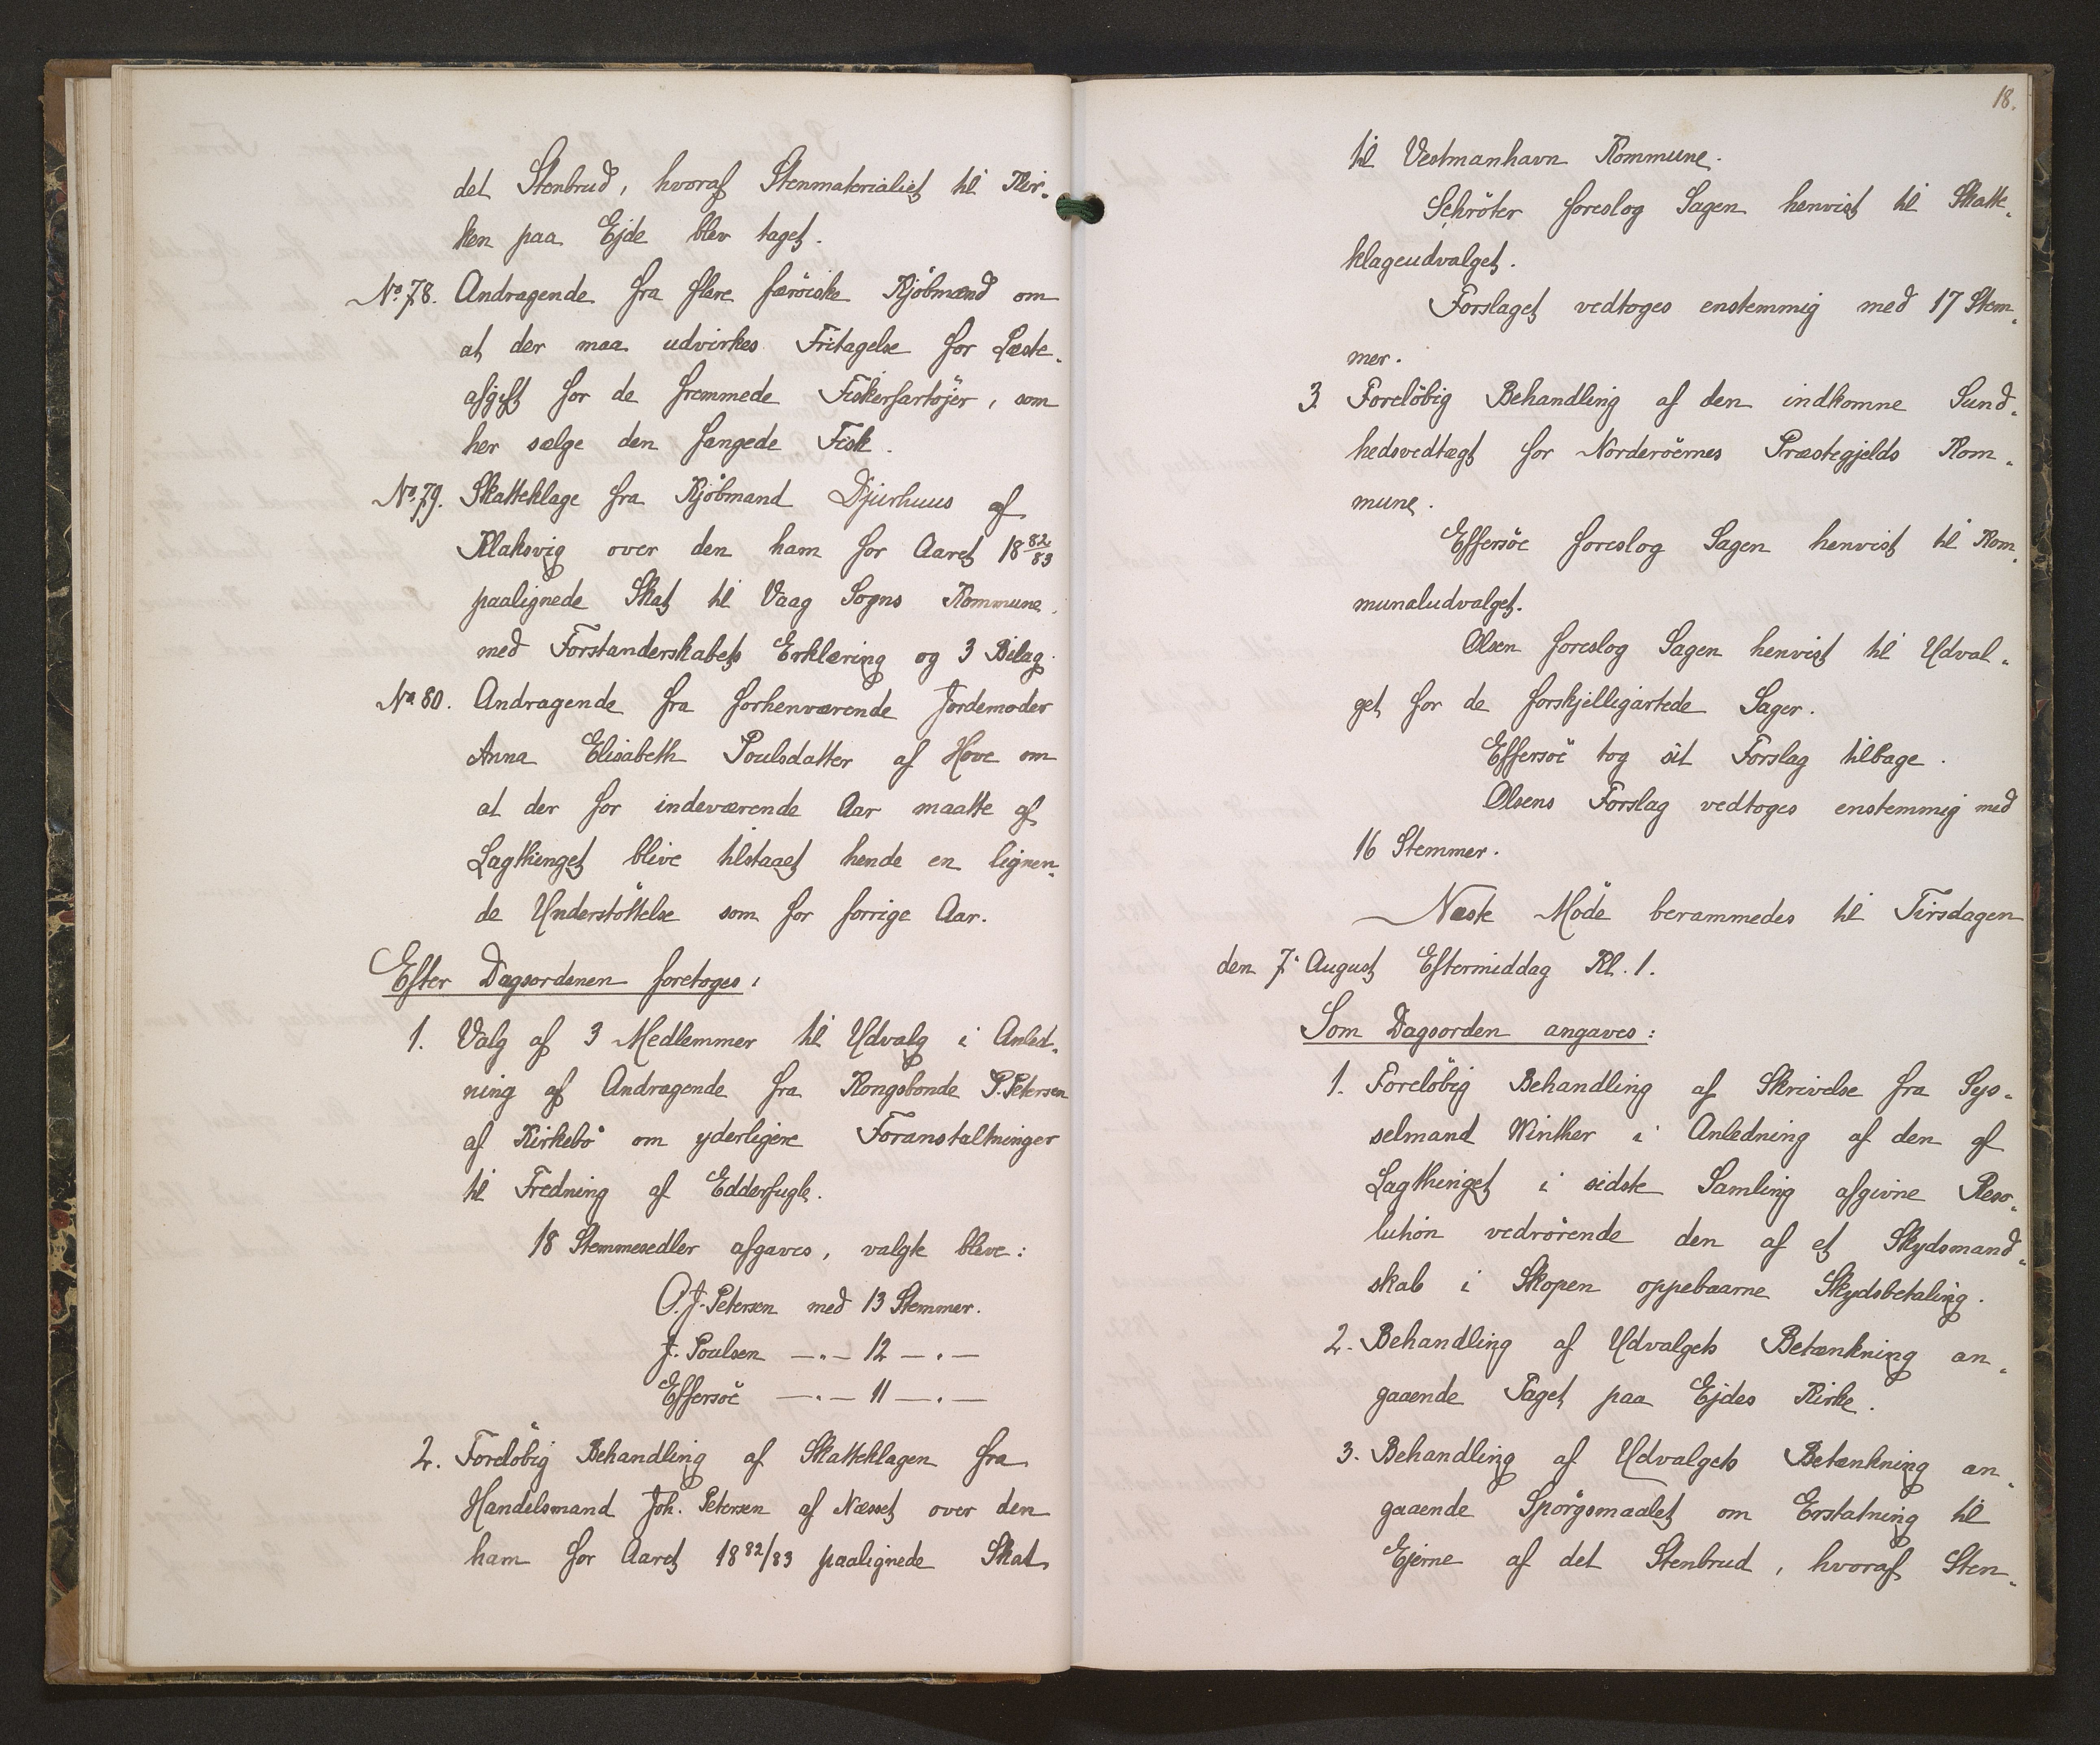 det Stenbrud, hvoraf Stenmaterialiet til Kir-
ken paa Ejde blev taget.
No. 78. Andragende fra flere færöiske Kjöbmænd om
at der maa udvirkes Fritagelse for Læste-
afgift for de fremmede Fiskerfartöjer, som
her sælge den fangede Fisk.
No. 79. Skatteklage fra Kjöbmand Djurhuus af
Klaksvig over den ham for Aaret 18 82/83
paalignede Skat til Vaag Sogns Kommune
med Forstanderskabets Erklæring og 3 Bilag.
No. 80. Andragende fra forhenværende Jordemoder
Anna Elisabeth Poulsdatter af Hove om
at der for indeværende Aar maatte af
Lagthinget blive tilstaaet hende en lignen-
de Understöttelse som for forrige Aar.
Efter Dagsordenen foretoges:
1. Valg af 3 Medlemmer til Udvalg i Anled-
ning af Andragende fra Kongsbonde P. Petersen
af Kirkebö om yderligere Foranstaltninger
til Fredning af Edderfugle.
18 Stemmesedler afgaves, valgte bleve:
O. J. Petersen med 13 Stemmer.
J. Poulsen —„— 12 —„—
Effersöe —„— 11 —„—
2. Forelöbig Behandling af Skatteklagen fra
Handelsmand Joh. Petersen af Næsset over den
ham for Aaret 18 82/83 paalignede Skat
18.
til Vestmanhavn Kommune.
Schröter foreslog Sagen henvist til Skatte-
klageudvalget.
Forslaget vedtoges enstemmig med 17 Stem-
mer.
3. Forelöbig Behandling af den indkomne Sund-
hedsvedtægt for Norderöernes Præstegjelds Kom-
mune.
Effersöe foreslog Sagen henvist til Kom-
munaludvalget.
Olsen foreslog Sagen henvist til Udval-
get for de forskjelligartede Sager.
Effersöe tog sit Forslag tilbage.
Olsens Forslag vedtoges enstemmig med
16 Stemmer.
Næste Möde berammedes til Tirsdagen
den 7. August Eftermiddag Kl. 1.
Som Dagsorden angaves:
1. Forelöbig Behandling af Skrivelse fra Sys-
selmand Winther i Anledning af den af
Lagthinget i sidste Samling afgivne Reso-
lution vedrörende den af et Skydsmand-
skab i Skopen oppebaarne Skydsbetaling.
2. Behandling af Udvalgets Betænkning an-
gaaende Taget paa Ejdes Kirke.
3. Behandling af Udvalgets Betænkning an-
gaaende Spörgsmaalet om Erstatning til
Ejerne af det Stenbrud, hvoraf Sten-